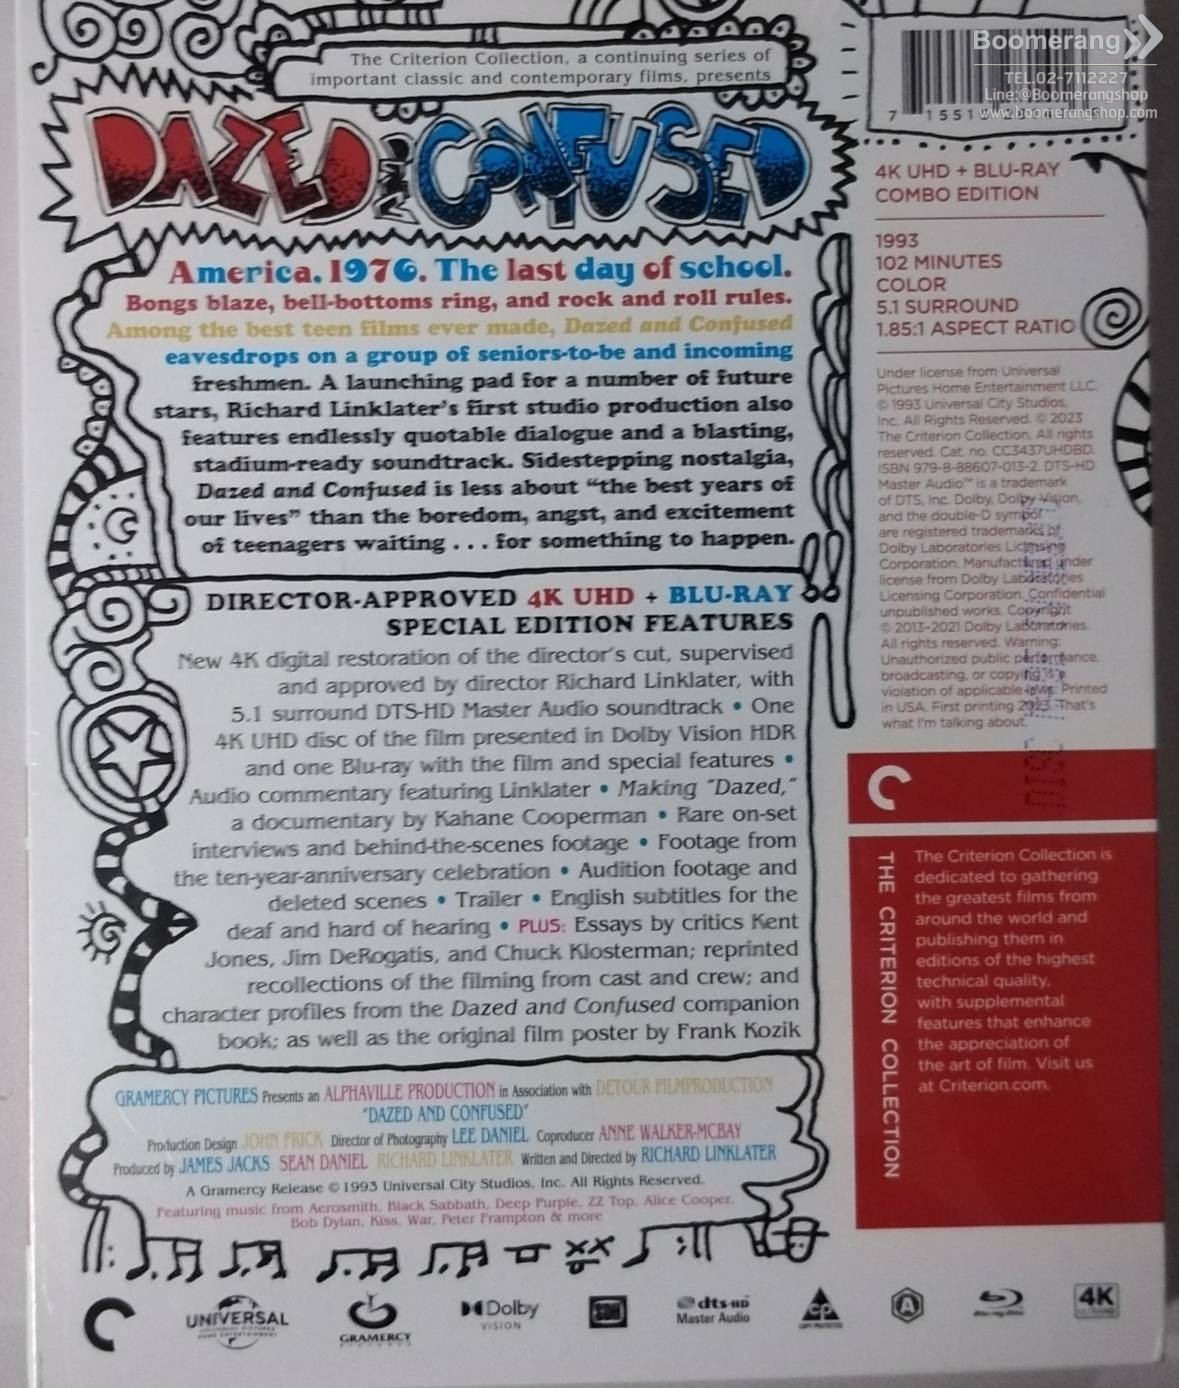 The Criterion Collection, a continuing series of
important classic and contemporary films, presents
DAZED AND CONFUSED
America. 1976. The last day of school.
Bongs blaze, bell-bottoms ring, and rock and roll rules.
Among the best teen films ever made, Dazed and Confused
eavesdrops on a group of seniors-to-be and incoming
freshmen. A launching pad for a number of future
stars, Richard Linklater's first studio production also
features endlessly quotable dialogue and a blasting,
stadium-ready soundtrack. Sidestepping nostalgia,
Dazed and Confused is less about "the best years of
our lives" than the boredom, angst, and excitement
of teenagers waiting . . . for something to happen.
DIRECTOR-APPROVED 4K UHD + BLU-RAY
SPECIAL EDITION FEATURES
New 4K digital restoration of the director's cut, supervised
and approved by director Richard Linklater, with
5.1 surround DTS-HD Master Audio soundtrack • One
4K UHD disc of the film presented in Dolby Vision HDR
and one Blu-ray with the film and special features •
Audio commentary featuring Linklater • Making "Dazed,"
a documentary by Kahane Cooperman • Rare on-set
interviews and behind-the-scenes footage • Footage from
the ten-year-anniversary celebration • Audition footage and
deleted scenes • Trailer • English subtitles for the
deaf and hard of hearing • PLUS: Essays by critics Kent
Jones, Jim DeRogatis, and Chuck Klosterman; reprinted
recollections of the filming from cast and crew; and
character profiles from the Dazed and Confused companion
book; as well as the original film poster by Frank Kozik
GRAMERCY PICTURES Presents an ALPHAVILLE PRODUCTION in Association with DETOUR FILMPRODUCTION
"DAZED AND CONFUSED"
Production Design JOHN FRICK Director of Photography LEE DANIEL Coproducer ANNE WALKER-MCBAY
Produced by JAMES JACKS SEAN DANIEL RICHARD LINKLATER Written and Directed by RICHARD LINKLATER
A Gramercy Release © 1993 Universal City Studios, Inc. All Rights Reserved.
Featuring music from Aerosmith, Black Sabbath, Deep Purple, ZZ Top, Alice Cooper,
Bob Dylan, Kiss, War, Peter Frampton & more
UNIVERSAL
GRAMERCY
PICTURES
Dolby
VISION
SDH
dts-HD
Master Audio
CP
A
Blu-ray Disc
4K
ULTRA HD
Boomerang
TEL.02-7112227
Line:@Boomerangshop
www.boomerangshop.com
7 1551
4K UHD + BLU-RAY
COMBO EDITION
1993
102 MINUTES
COLOR
5.1 SURROUND
1.85:1 ASPECT RATIO
Under license from Universal
Pictures Home Entertainment LLC.
© 1993 Universal City Studios,
Inc. All Rights Reserved. © 2023
The Criterion Collection. All rights
reserved. Cat. no. CC3437UHDBD.
ISBN 979-8-88607-013-2. DTS-HD
Master Audio™ is a trademark
of DTS, Inc. Dolby, Dolby Vision,
and the double-D symbol
are registered trademarks of
Dolby Laboratories Licensing
Corporation. Manufactured under
license from Dolby Laboratories
Licensing Corporation. Confidential
unpublished works. Copyright
© 2013-2021 Dolby Laboratories.
All rights reserved. Warning:
Unauthorized public performance,
broadcasting, or copying is a
violation of applicable laws. Printed
in USA. First printing 2023. That's
what I'm talking about.
THE CRITERION COLLECTION
The Criterion Collection is
dedicated to gathering
the greatest films from
around the world and
publishing them in
editions of the highest
technical quality,
with supplemental
features that enhance
the appreciation of
the art of film. Visit us
at Criterion.com.